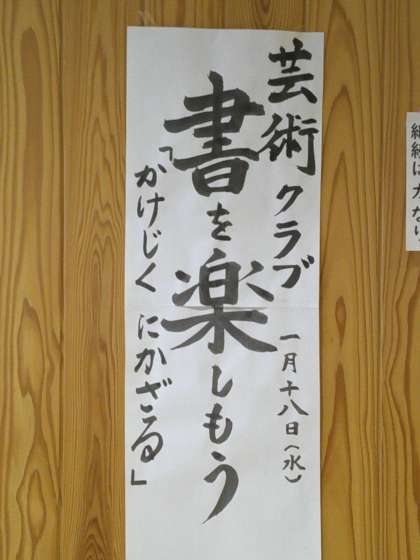 継続は力なり
芸術クラブ
一月十八日(水)
書を楽しもう
「かけじくにかざる」